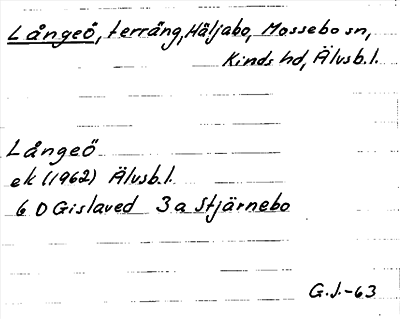 Långeö, terräng, Häljabo, Mossebo sn,
Kinds hd, Älvsb.l.
Långeö
ek (1962) Älvsb.l.
6 D Gislaved 3 a Stjärnebo
G.J.-63